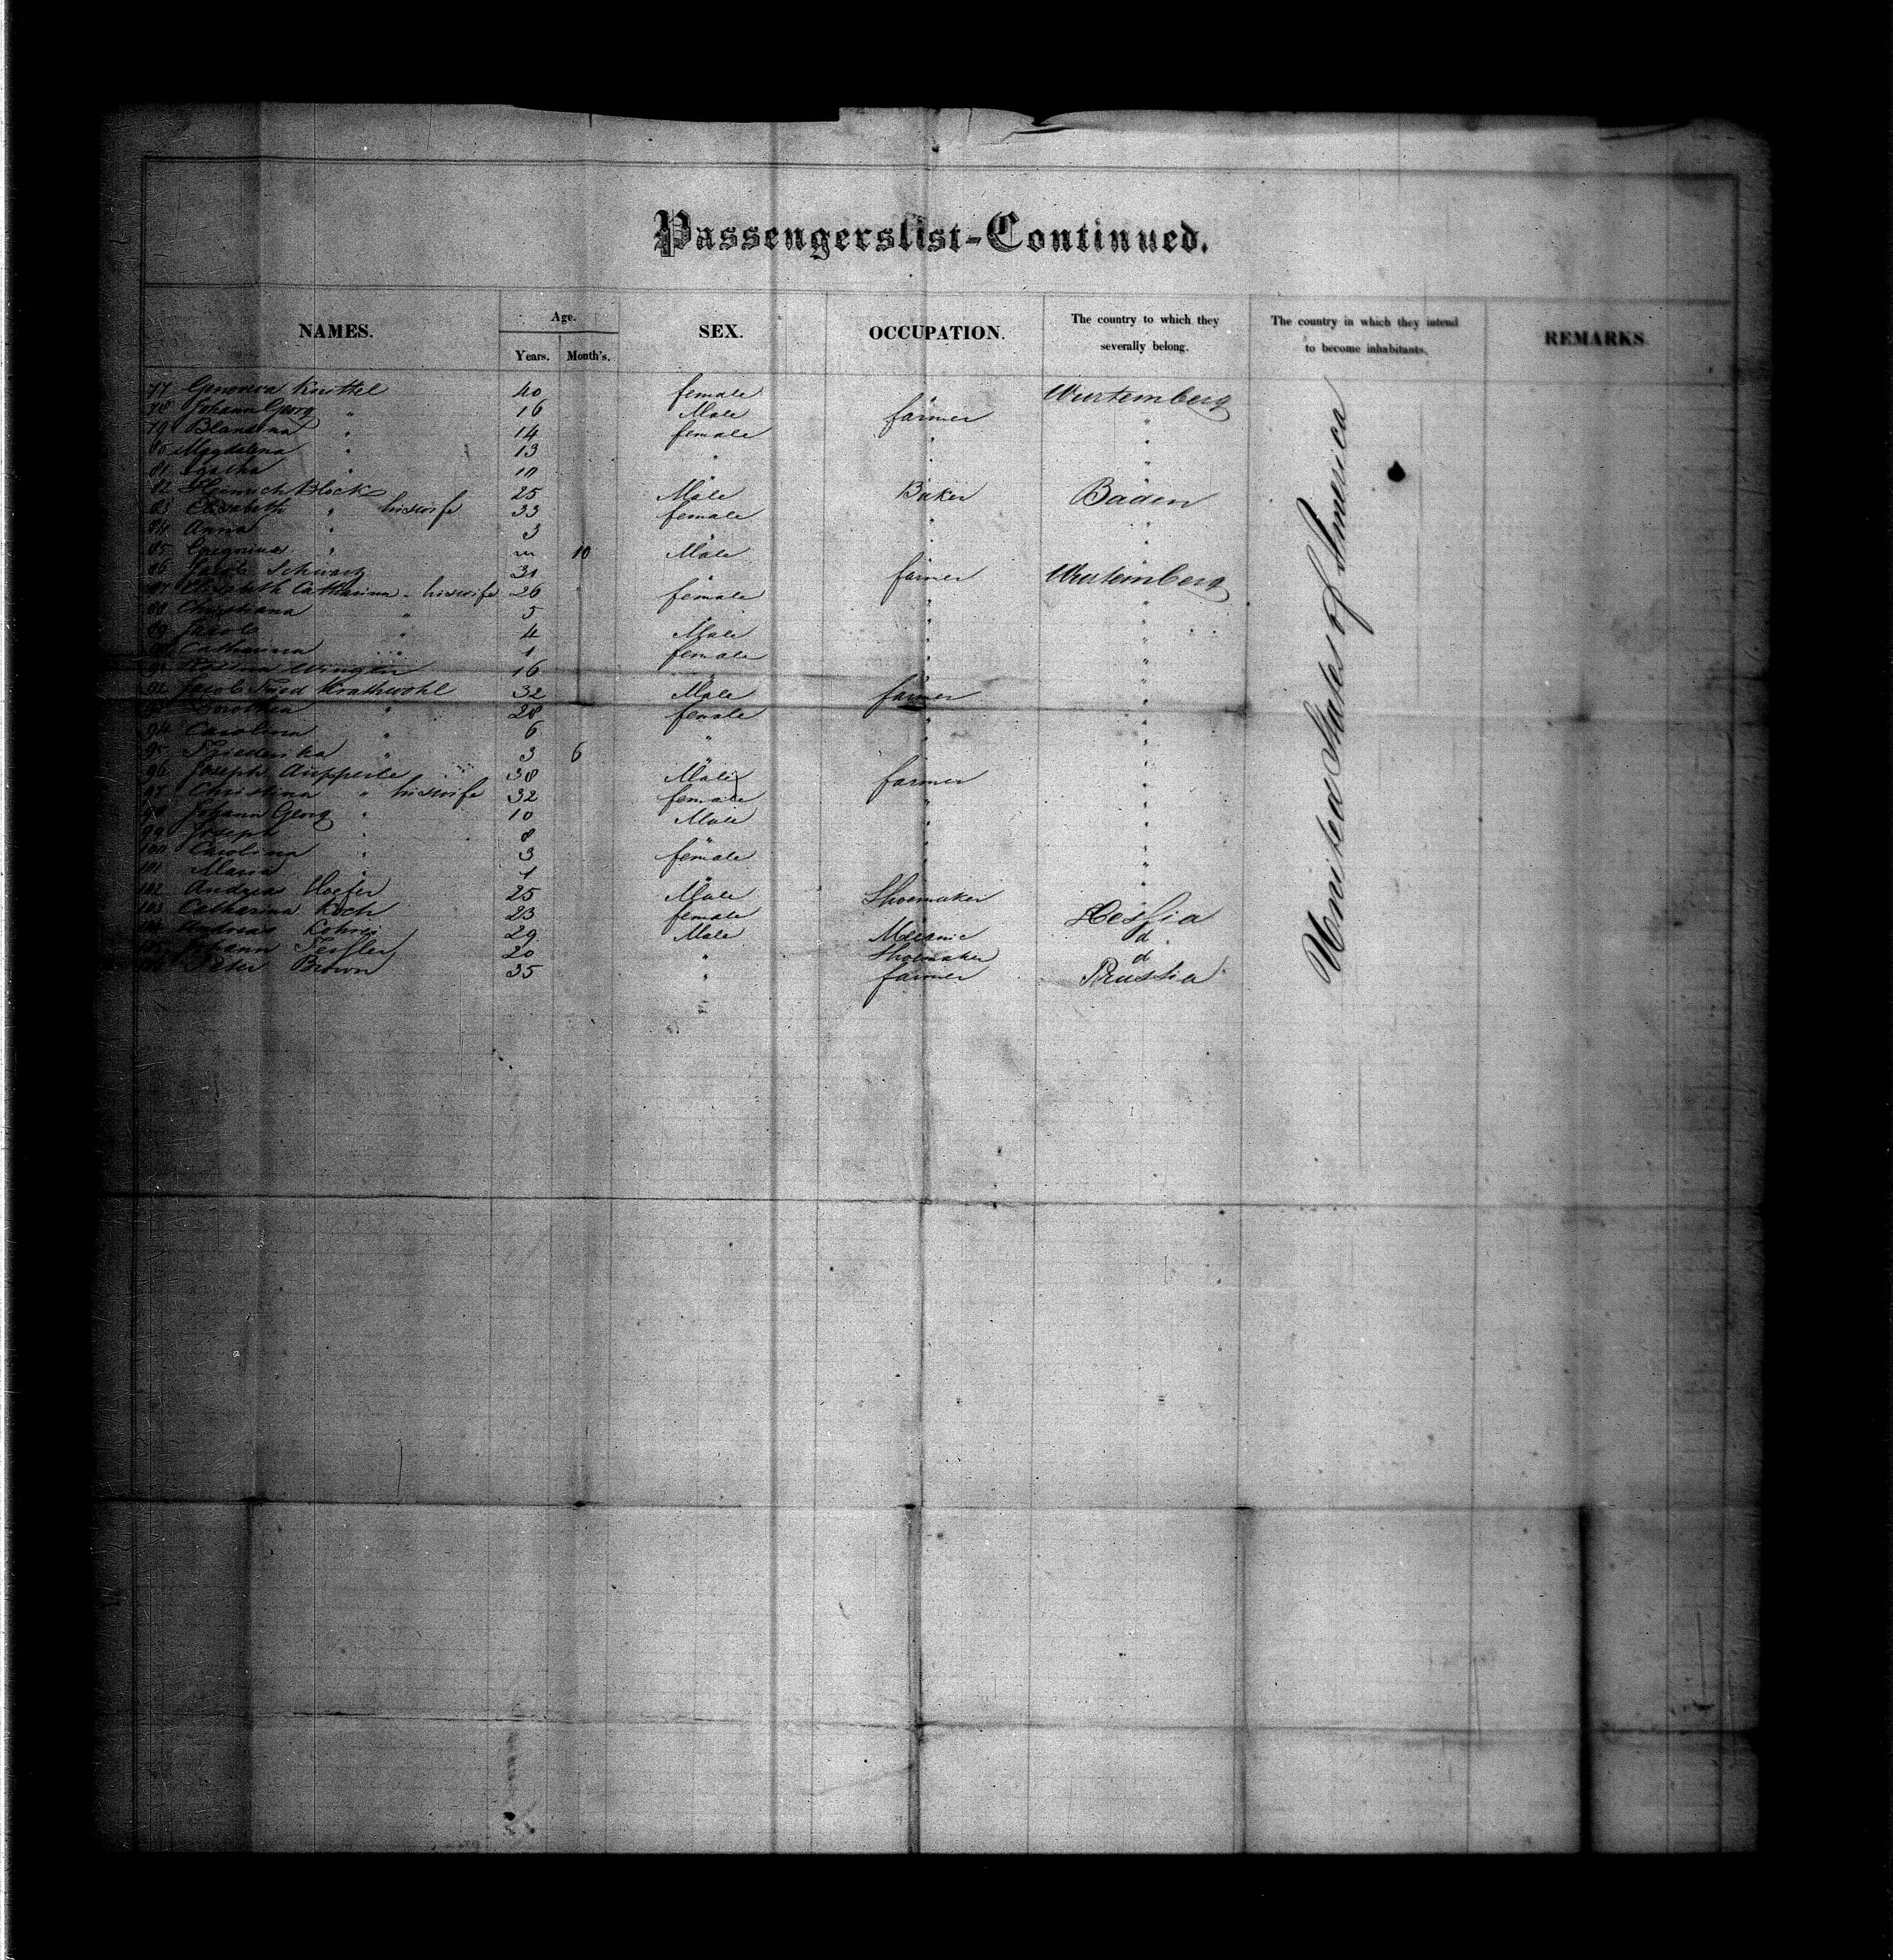 Passengerslist-Continued.
NAMES. Age. Years. Month's. SEX. OCCUPATION. The country to which they severally belong. The country in which they intend to become inhabitants. REMARKS
77 Genoveva Knittel 40 female Wurtemberg
78 Johann Georg " 16 Male farmer "
79 Blandina " 14 female " "
80 Magdalena " 13 " " "
81 Agatha " 10 " " "
82 Heinrich Block 25 Male Baker Baden
83 Elisabeth " his wife 33 female " "
84 Anna " 3 " " "
85 " m 10 Male " "
86 Jacob Schwartz 31 " farmer Wurtemberg
87 Elizabeth Catharina " his wife 26 female " "
88 Christiana " 5 " " "
89 Jacob " 4 Male " "
90 Catharina " 1 female " "
91 16 " " "
92 Jacob Fried Krathwohl 32 Male farmer "
93 Dorothea " 28 female " "
94 Carolina " 6 " " "
95 Friederika " 3 6 " " "
96 Joseph Aupperle 38 Male farmer "
97 Christina " his wife 32 female " "
98 Johann Georg " 10 Male " "
99 Joseph " 8 " " "
100 Carolina " 3 female " "
101 Maria " 1 " " "
102 Andreas Hoefer 25 Male Shoemaker "
103 Catharina Koch 23 female Hessia
104 Andreas 29 Male Mecanic d
105 Johann 20 " Shoemaker d
106 Peter Brown 35 " farmer Prussia
United States of America